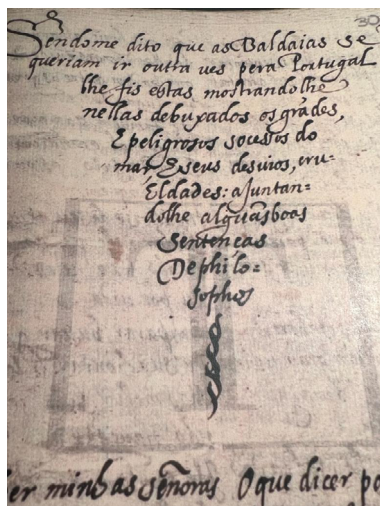 30
Sendome dito que as Baldaias se
queriam ir outra ves pera Portugal
lhe fis estas mostrandolhe
nellas debuxados os grādes,
E peligrosos socessos do
mar E seus desuios, cru-
Eldades: ajuntan=
dolhe alguās boas
Sentencas
De philo=
sophos
er minhas señoras O que dicer po